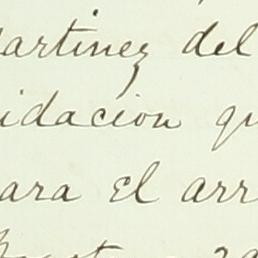 artinez del
idacion qu
ara el arr